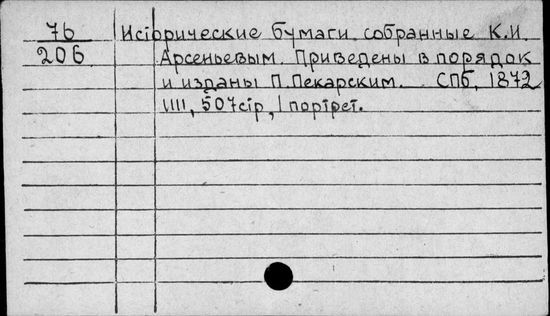 76 Исторические бумаги, собранные К.И.
206 Арсеньевым. Приведены в порядок
и изданы П.Пекарским. СПб, 1872
IIII, 507стр, 1 портрет.